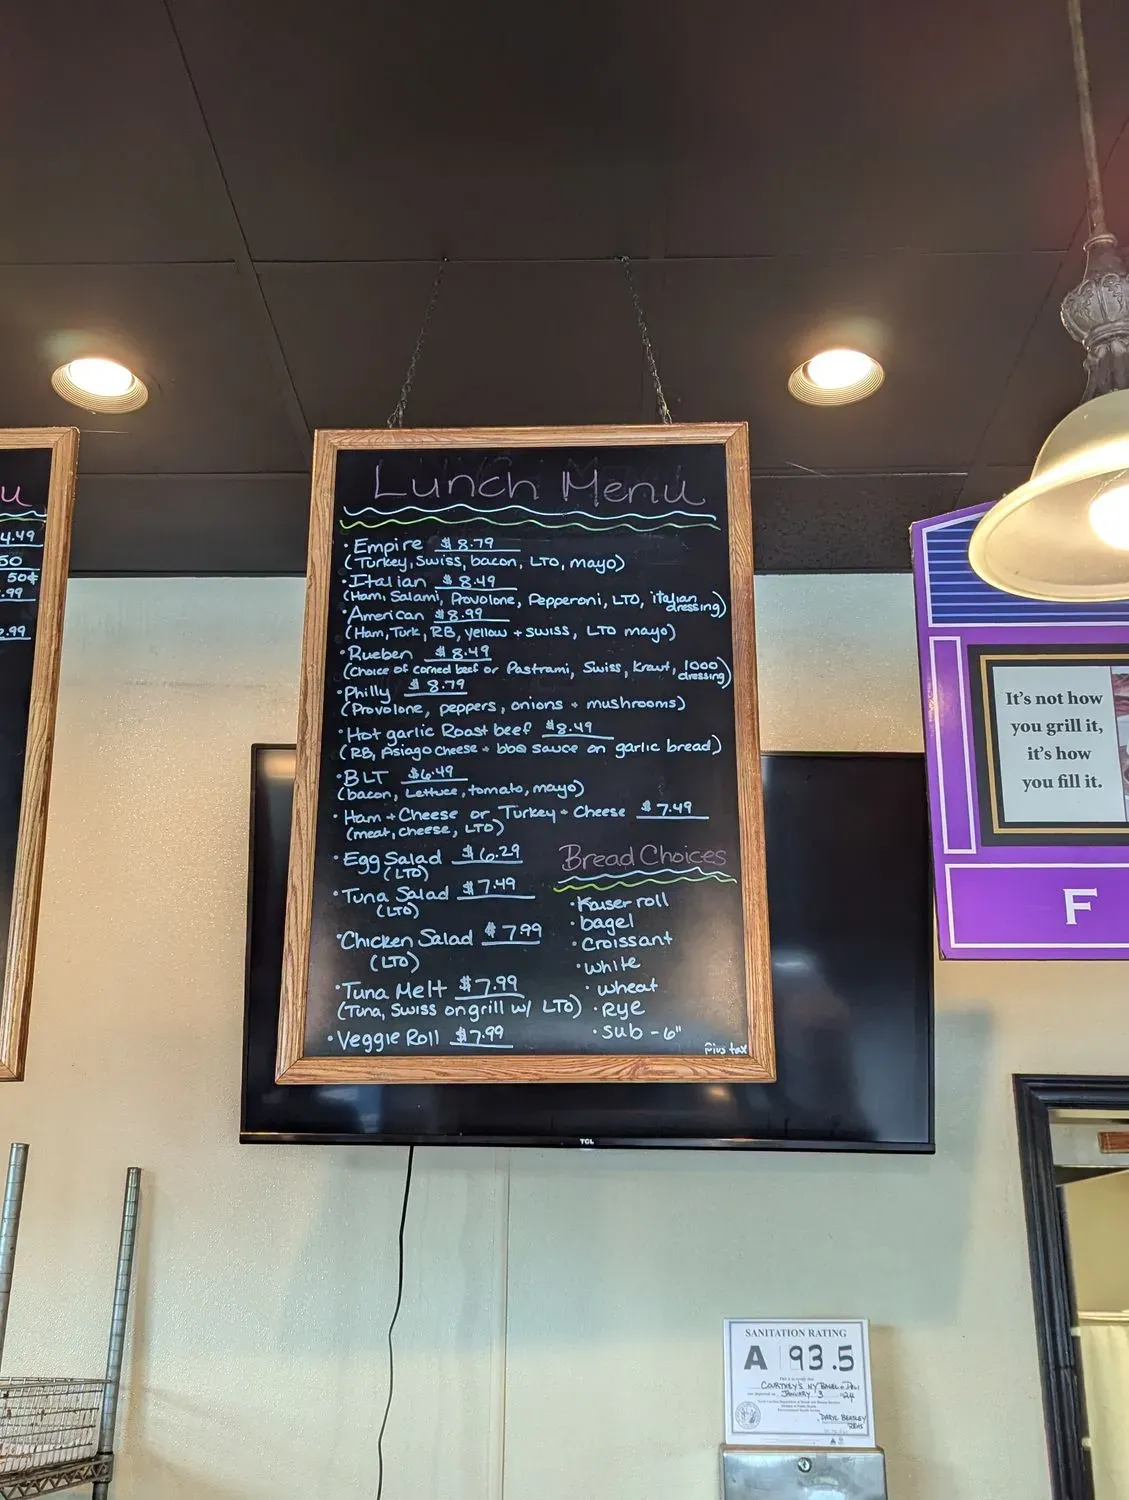 u
4.49
50
50¢
.99
.99
Lunch Menu
• Empire $8.79
(Turkey, Swiss, bacon, LTO, mayo)
• Italian $8.49
(Ham, Salami, Provolone, Pepperoni, LTO, italian dressing)
• American $8.99
(Ham, Turk, RB, yellow + swiss, LTO mayo)
• Rueben $8.49
(Choice of corned beef or Pastrami, Swiss, Kraut, 1000 dressing)
• Philly $8.79
(Provolone, peppers, onions + mushrooms)
• Hot garlic Roast beef $8.49
(RB, Asiago Cheese + bbq sauce on garlic bread)
• BLT $6.49
(bacon, Lettuce, tomato, mayo)
• Ham + Cheese or Turkey + Cheese $7.49
(meat, cheese, LTO)
• Egg Salad $6.29
(LTO)
• Tuna Salad $7.49
(LTO)
• Chicken Salad $7.99
(LTO)
• Tuna Melt $7.99
(Tuna, Swiss on grill w/ LTO)
• Veggie Roll $7.99
Bread Choices
• Kaiser roll
• bagel
• Croissant
• white
• wheat
• Rye
• Sub - 6"
Plus tax
It's not how
you grill it,
it's how
you fill it.
F
TCL
SANITATION RATING
A 93.5
COURTNEY'S NY BAGEL + DELI
JANUARY 3 '24
DARYL BEASLEY
REHS